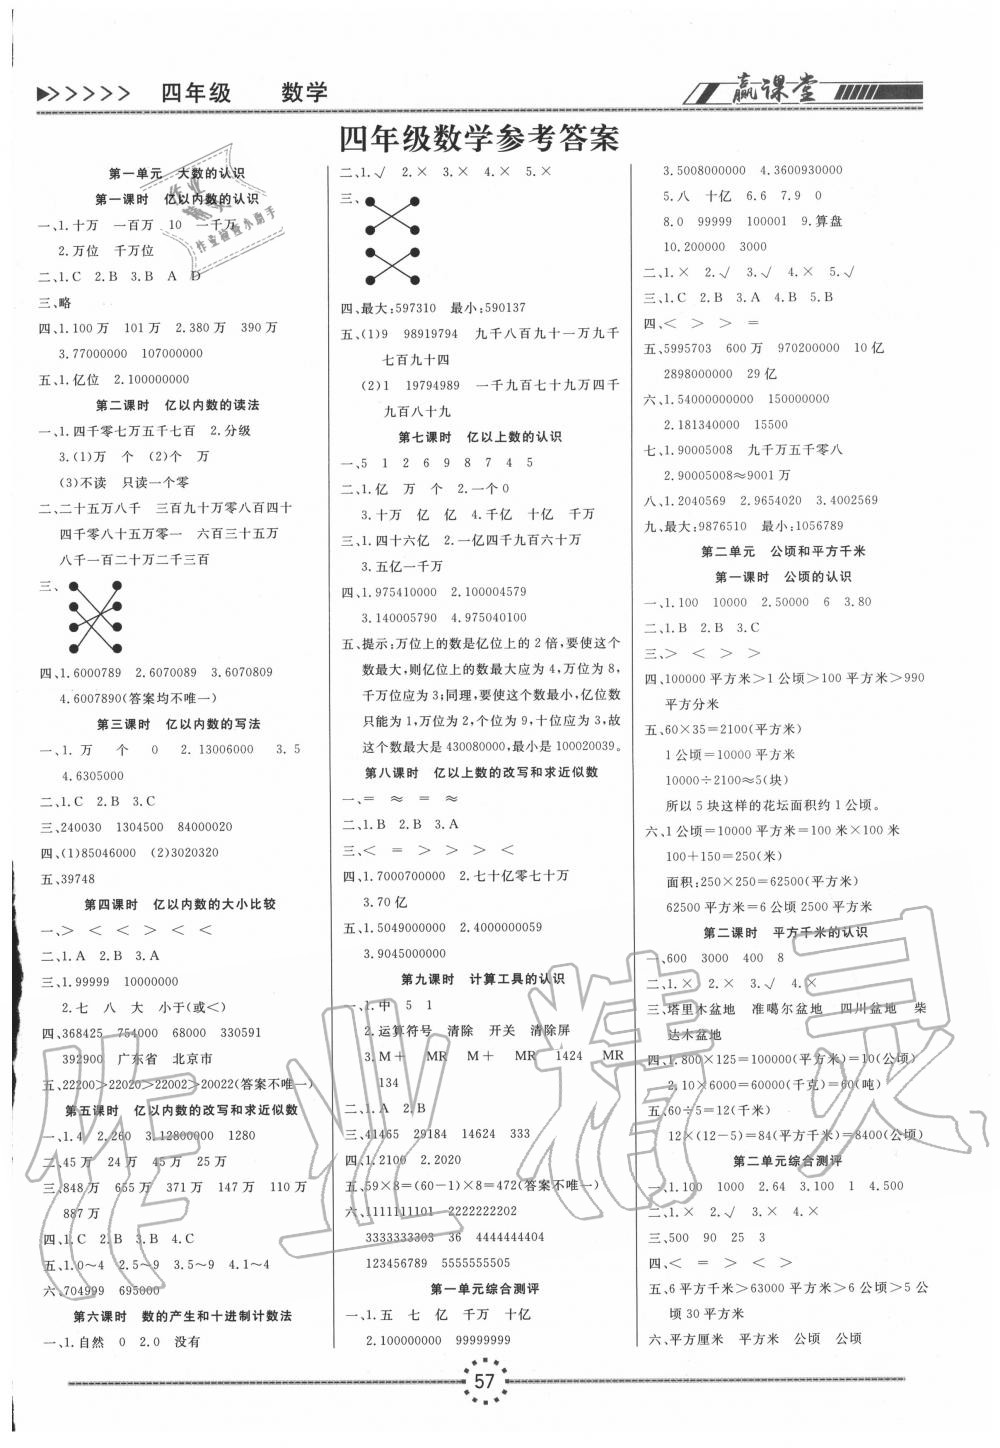 四年级 数学
赢课堂
四年级数学参考答案
第一单元 大数的认识
第一课时 亿以内数的认识
一、1.十万 一百万 10 一千万
2.万位 千万位
二、1.C 2.B 3.B A D
三、略
四、1.100万 101万 2.380万 390万
3.77000000 107000000
五、1.亿位 2.100000000
第二课时 亿以内数的读法
一、1.四千零七万五千七百 2.分级
3.(1)万 个 (2)个 万
(3)不读 只读一个零
二、二十五万八千 三百九十万零八百四十
四千零八十五万零一 六百三十五万
八千一百二十万二千三百
三、
四、1.6000789 2.6070089 3.6070809
4.6007890(答案均不唯一)
第三课时 亿以内数的写法
一、1. 万 个 0 2. 13006000 3. 5
4.6305000
二、1.C 2.B 3.C
三、240030 1304500 84000020
四、(1)85046000 (2)3020320
五、39748
第四课时 亿以内数的大小比较
一、＞ ＜ ＜ ＞ ＜ ＜
二、1.A 2.B 3.A
三、1.99999 10000000
2.七 八 大 小于(或＜)
四、368425 754000 68000 330591
392900 广东省 北京市
五、22200＞22020＞22002＞20022(答案不唯一)
第五课时 亿以内数的改写和求近似数
一、1.4 2.260 3.12800000 1280
二、45万 24万 45万 25万
三、848万 655万 371万 147万 110万
887万
四、1.C 2.B 3.B 4.C
五、1.0～4 2.5～9 3.5～9 4.1～4
六、704999 695000
第六课时 数的产生和十进制计数法
一、1.自然 0 2.0 没有
二、1.√ 2.× 3.× 4.× 5.×
三、
四、最大:597310 最小:590137
五、(1)9 98919794 九千八百九十一万九千
七百九十四
(2)1 19794989 一千九百七十九万四千
九百八十九
第七课时 亿以上数的认识
一、5 1 2 6 9 8 7 4 5
二、1.亿 万 个 2.一个0
3.十万 亿 亿 4.千亿 十亿 千万
三、1.四十六亿 2.一亿四千九百六十万
3.五亿一千万
四、1.975410000 2.100004579
3.140005790 4.975040100
五、提示:万位上的数是亿位上的2倍,要使这个
数最大,则亿位上的数最大应为4,万位为8,
千万位应为3;同理,要使这个数最小,亿位数
只能为1,万位为2,个位为9,十位应为3,故
这个数最大是430080000,最小是100020039。
第八课时 亿以上数的改写和求近似数
一、＝ ≈ ＝ ≈
二、1.B 2.B 3.A
三、＜ ＝ ＞ ＞ ＞ ＜
四、1.7000700000 2.七十亿零七十万
3.70亿
五、1.5049000000 2.4000000059
3.9045000000
第九课时 计算工具的认识
一、1.中 5 1
2.运算符号 清除 开关 清除屏
3.M＋ MR M＋ MR 1424 MR
134
二、1.A 2.B
三、41465 29184 14624 333
四、1.2100 2.2020
五、59×8＝(60－1)×8＝472(答案不唯一)
六、1111111101 2222222202
3333333303 36 4444444404
123456789 5555555505
第一单元综合测评
一、1.五 七 亿 千万 十亿
2.100000000 99999999
3.5008000000 4.3600930000
5.八 十亿 6.6 7.9 0
8.0 99999 100001 9.算盘
10.200000 3000
二、1.× 2.√ 3.√ 4.× 5.√
三、1.C 2.B 3.A 4.B 5.B
四、＜ ＞ ＞ ＝
五、5995703 600万 970200000 10亿
2898000000 29亿
六、1.54000000000 150000000
2.181340000 15500
七、1.90005008 九千万五千零八
2.90005008≈9001万
八、1.2040569 2.9654020 3.4002569
九、最大:9876510 最小:1056789
第二单元 公顷和平方千米
第一课时 公顷的认识
一、1.100 10000 2.50000 6 3.80
二、1.B 2.B 3.C
三、＞ ＜ ＞ ＞
四、100000平方米＞1公顷＞100平方米＞990
平方分米
五、60×35＝2100(平方米)
1公顷＝10000平方米
10000÷2100≈5(块)
所以5块这样的花坛面积约1公顷。
六、1公顷＝10000平方米＝100米×100米
100＋150＝250(米)
面积:250×250＝62500(平方米)
62500平方米＝6公顷2500平方米
第二课时 平方千米的认识
一、600 3000 400 8
二、1.× 2.√ 3.√ 4.×
三、塔里木盆地 准噶尔盆地 四川盆地 柴
达木盆地
四、1.800×125＝100000(平方米)＝10(公顷)
2.10×6000＝60000(千克)＝60(吨)
五、60÷5＝12(千米)
12×(12－5)＝84(平方千米)＝8400(公顷)
第二单元综合测评
一、1.100 1000 2.64 3.100 1 4.500
二、1.× 2.√ 3.× 4.×
三、500 90 25 3
四、＜ ＝ ＞ ＜ ＞
五、6平方千米＞63000平方米＞6公顷＞5公
顷30平方米
六、平方厘米 平方米 公顷 公顷
57
作业精灵
作业精灵
作业检查小助手